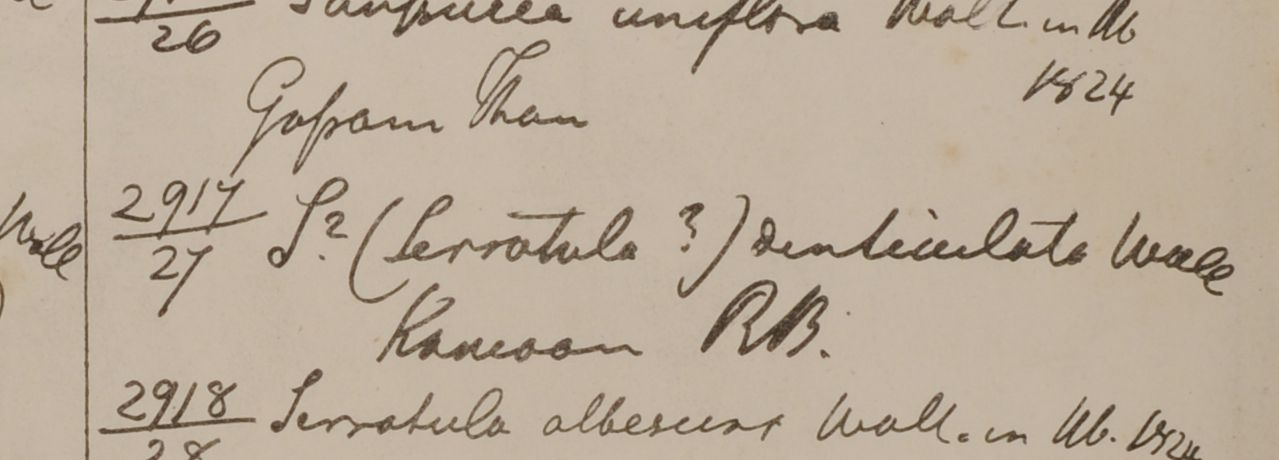 26 uniflora Wall. in Hb
1824
Gossam Than
Wall
2917
27 S? (Serratula ?) denticulata Wall
Kamoon RB.
2918 Serratula albescens Wall. in Hb. 1824
28